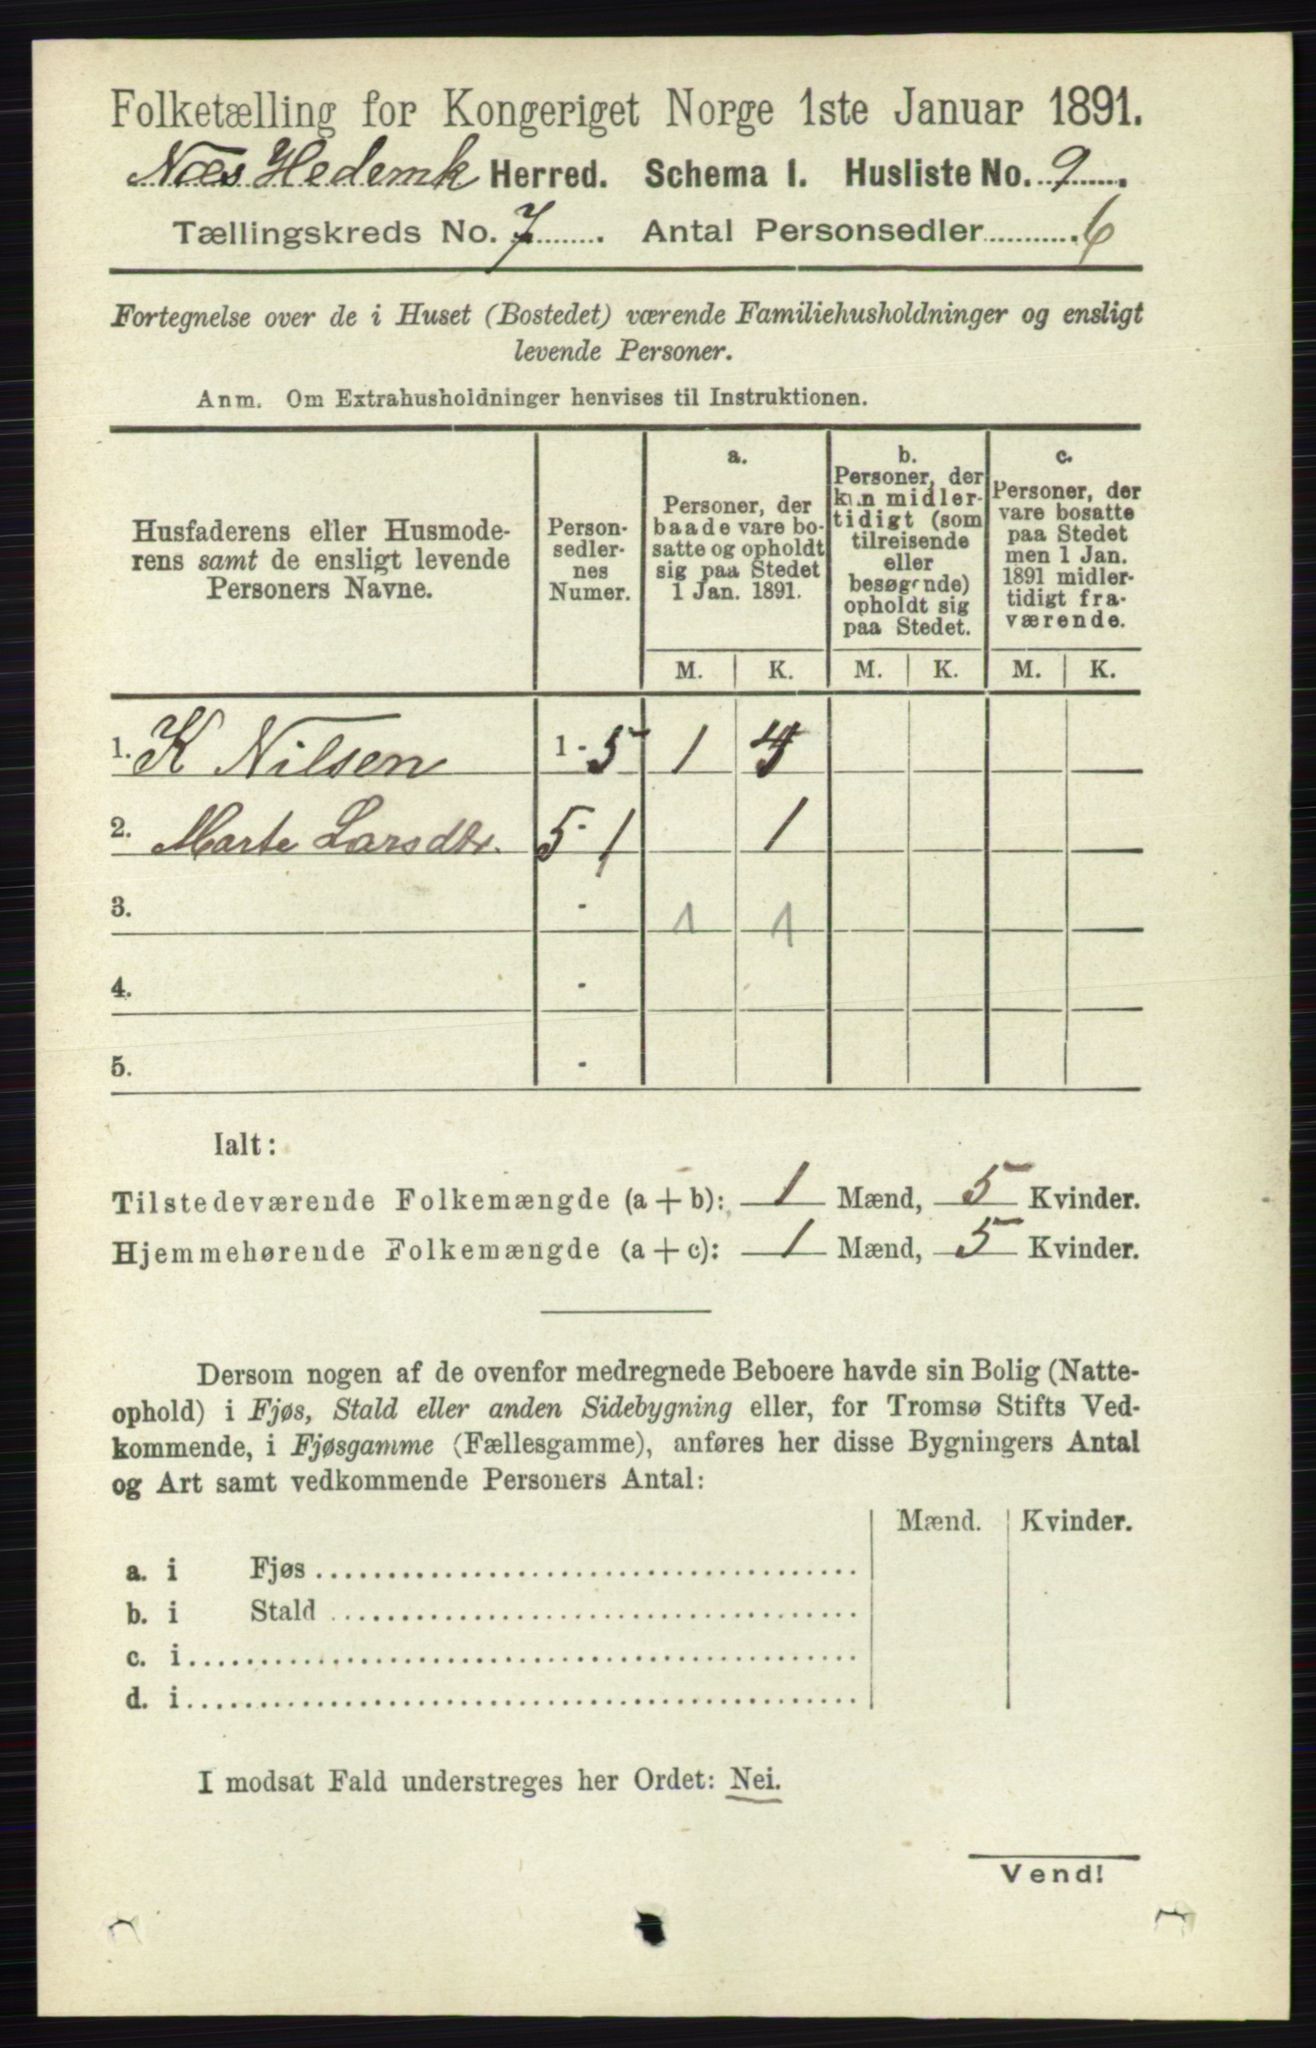 Folketælling for Kongeriget Norge 1ste Januar 1891.
Næs Hedemk Herred. Schema 1. Husliste No. 9
Tællingskreds No. 7 Antal Personsedler 6
Fortegnelse over de i Huset (Bostedet) værende Familiehusholdninger og ensligt
levende Personer.
Anm. Om Extrahusholdninger henvises til Instruktionen.
Husfaderens eller Husmode-
rens samt de ensligt levende
Personers Navne.
Person-
sedler-
nes
Numer.
a.
Personer, der
baade vare bo-
satte og opholdt
sig paa Stedet
1 Jan. 1891.
b.
Personer, der
kun midler-
tidigt (som
tilreisende
eller
besøgende)
opholdt sig
paa Stedet.
c.
Personer, der
vare bosatte
paa Stedet
men 1 Jan.
1891 midler-
tidigt fra-
værende.
M. K. M. K. M. K.
1. K Nilsen 1 - 5 1 4
2. Marte Larsdtr. 5 - 1 1
3. - 1 1
4. -
5. -
Ialt:
Tilstedeværende Folkemængde (a + b): 1 Mænd, 5 Kvinder.
Hjemmehørende Folkemængde (a + c): 1 Mænd, 5 Kvinder.
Dersom nogen af de ovenfor medregnede Beboere havde sin Bolig (Natte-
ophold) i Fjøs, Stald eller anden Sidebygning eller, for Tromsø Stifts Ved-
kommende, i Fjøsgamme (Fællesgamme), anføres her disse Bygningers Antal
og Art samt vedkommende Personers Antal:
Mænd. Kvinder.
a. i Fjøs
b. i Stald
c. i
d. i
I modsat Fald understreges her Ordet: Nei.
Vend!